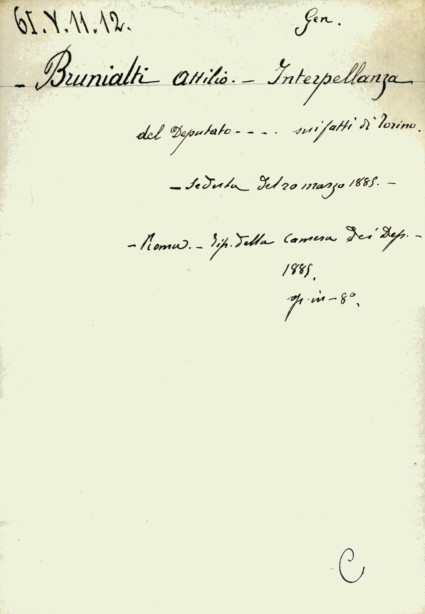 61.V.11.12.
Gen.
- Brunialti Attilio. - Interpellanza
del Deputato - - - . sui fatti di Torino.
- Seduta del 20 marzo 1885. -
- Roma. - Tip. della Camera dei Dep. -
1885.
op. in - 8°.
C